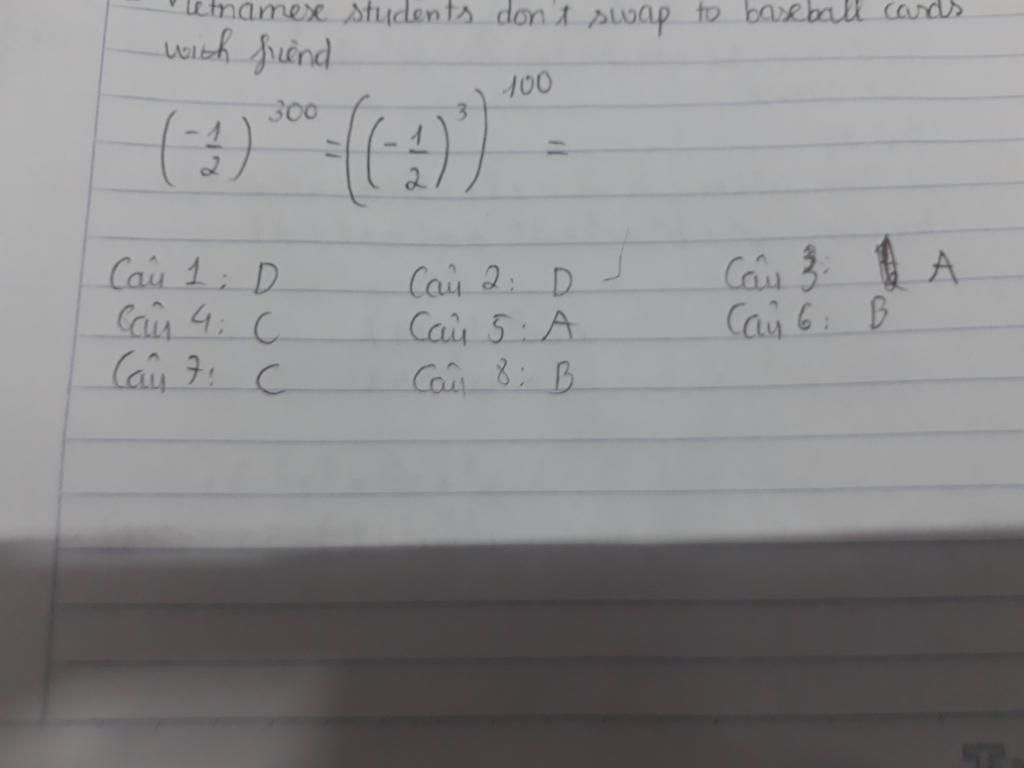 Vietnamese students don't swap to baseball cards
with friend
(-1/2)^300 = ((-1/2)^3)^100 =
Câu 1: D Câu 2: D Câu 3: A
Câu 4: C Câu 5: A Câu 6: B
Câu 7: C Câu 8: B